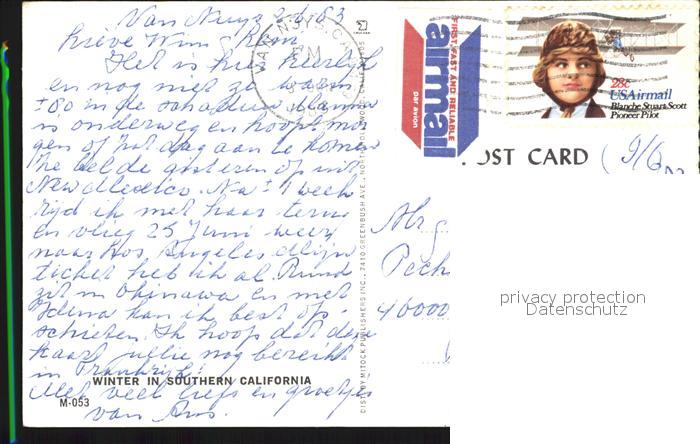 Van Nuys 2/6/83
Lieve Wim, Leon
Het is hier heerlijk
en nog niet zo warm
±80 in de schaduw.
is onderweg en hoopt mor
gen of pat dag aan te komen
belde gisteren op uit
New Mexico. Na ± 1 week
rijd ik met haar terug
en vlieg 25 Juni weer
naar Los Angeles. Mijn
ticket heb ik al. Ruud
zit in Okinawa en met
kan ik best op-
schieten. Ik hoop dat deze
kaart jullie nog bereikt
in Frankrijk.
Met veel liefs en groetjes
van Ans.
WINTER IN SOUTHERN CALIFORNIA
M-053
DIST. BY MITOCK PUBLISHERS INC., 7410 GREENBUSH AVE., NORTH HOLLYWOOD, CALIF. 91605
VAN NUYS, CA
PM
FIRST FAST AND RELIABLE
airmail
par avion
28c
USAirmail
Blanche Stuart Scott
Pioneer Pilot
OST CARD (9/6
Pech
46000
privacy protection
Datenschutz